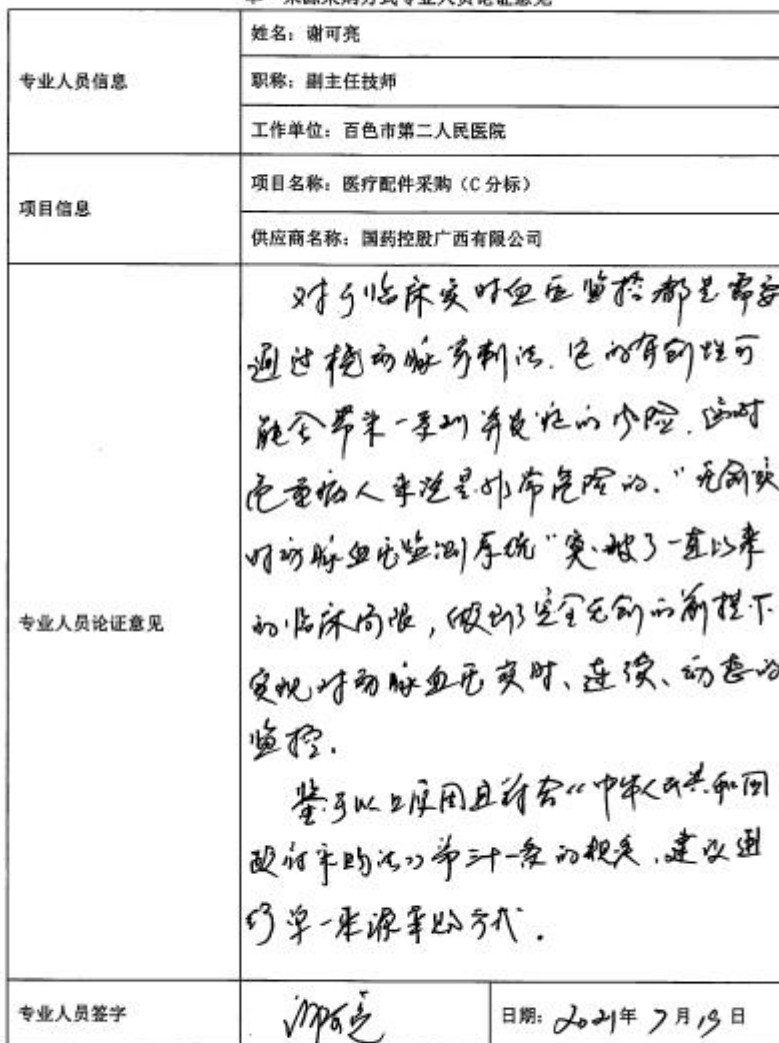 单一来源采购方式专业人员论证意见
专业人员信息
姓名：谢可亮
职称：副主任技师
工作单位：百色市第二人民医院
项目信息
项目名称：医疗配件采购（C 分标）
供应商名称：国药控股广西有限公司
专业人员论证意见
对于临床实时血压监控都是需要
通过桡动脉穿刺法.它的有创性可
能会带来一系列并发症的风险.这对
危重病人来说是非常危险的."无创实
时动脉血压监测系统"突破了一直以来
的临床局限，做到了完全无创的前提下
实现对动脉血压实时、连续、动态的
监控.
鉴于以上原因且符合《中华人民共和国
政府采购法》第三十一条的规定.建议进
行单一来源采购方式.
专业人员签字
谢可亮
日期：2021年7月19日